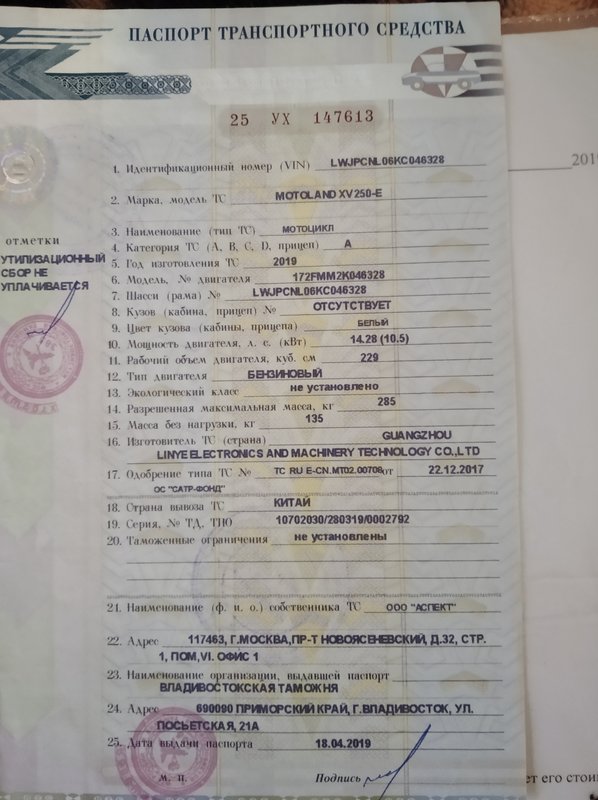 ПАСПОРТ ТРАНСПОРТНОГО СРЕДСТВА
25 УХ 147613
1. Идентификационный номер (VIN) LWJPCNL06KC046328
2. Марка, модель ТС MOTOLAND XV250-E
3. Наименование (тип ТС) МОТОЦИКЛ
4. Категория ТС (A, B, C, D, прицеп) A
5. Год изготовления ТС 2019
6. Модель, № двигателя 172FMM2K046328
7. Шасси (рама) № LWJPCNL06KC046328
8. Кузов (кабина, прицеп) № ОТСУТСТВУЕТ
9. Цвет кузова (кабины, прицепа) БЕЛЫЙ
10. Мощность двигателя, л. с. (кВт) 14.28 (10.5)
11. Рабочий объем двигателя, куб. см 229
12. Тип двигателя БЕНЗИНОВЫЙ
13. Экологический класс не установлено
14. Разрешенная максимальная масса, кг 285
15. Масса без нагрузки, кг 135
16. Изготовитель ТС (страна) GUANGZHOU
LINYE ELECTRONICS AND MACHINERY TECHNOLOGY CO.,LTD
17. Одобрение типа ТС № ТС RU E-CN.MT02.00708 от 22.12.2017
ОС "САТР-ФОНД"
18. Страна вывоза ТС КИТАЙ
19. Серия, № ТД, ТПО 10702030/280319/0002792
20. Таможенные ограничения не установлены
21. Наименование (ф. и. о.) собственника ТС ООО "АСПЕКТ"
22. Адрес 117463, Г.МОСКВА,ПР-Т НОВОЯСЕНЕВСКИЙ, Д.32, СТР.
1, ПОМ,VI. ОФИС 1
23. Наименование организации, выдавшей паспорт
ВЛАДИВОСТОКСКАЯ ТАМОЖНЯ
24. Адрес 690090 ПРИМОРСКИЙ КРАЙ, Г.ВЛАДИВОСТОК, УЛ.
ПОСЬЕТСКАЯ, 21А
25. Дата выдачи паспорта 18.04.2019
М. П. Подпись
отметки
УТИЛИЗАЦИОННЫЙ
СБОР НЕ
УПЛАЧИВАЕТСЯ
201
ет его стои